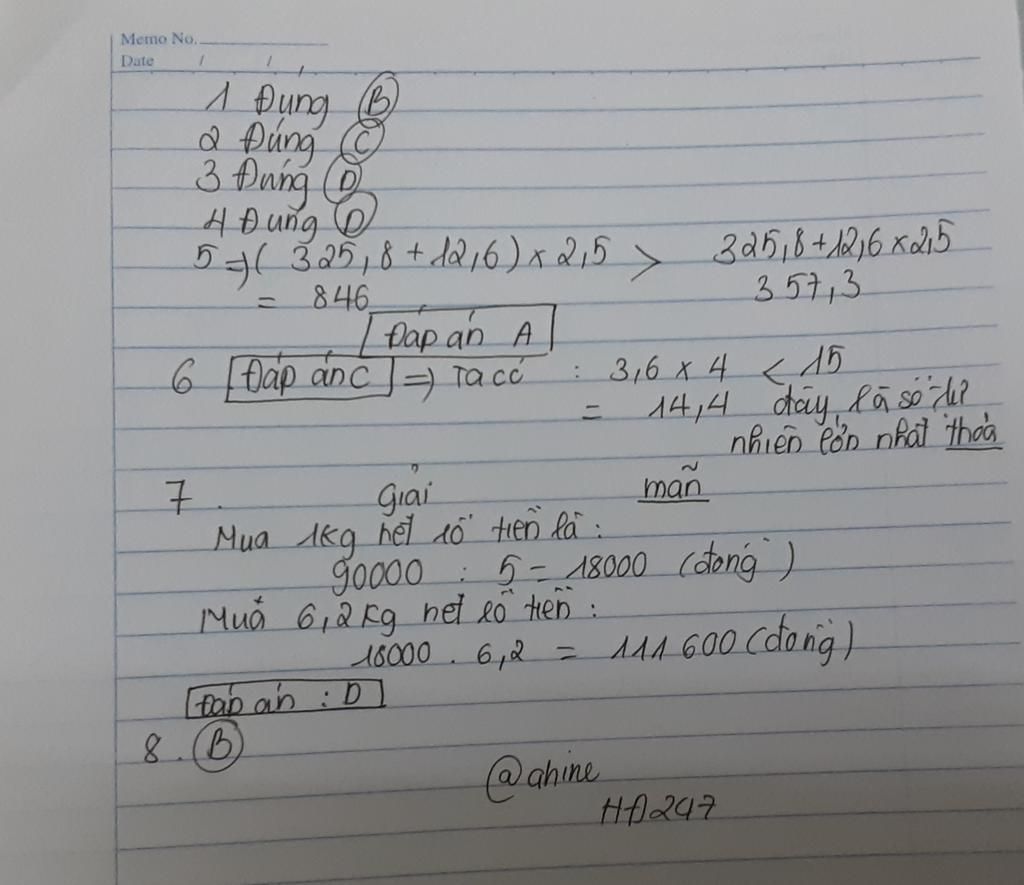 Memo No.
Date / /
1 Đung B
2 Đúng C
3 Đúng D
4 Đung D
5 => ( 325,8 + 12,6) x 2,5 > 325,8 + 12,6 x 2,5
= 846 357,3
Đáp án A
6 Đáp án C => Ta có : 3,6 x 4 < 15
= 14,4 đây là số tự
nhiên lớn nhất thỏa
mãn
7. Giải
Mua 1kg hết số tiền là :
90000 : 5 = 18000 (đồng)
Mua 6,2kg hết số tiền :
18000 . 6,2 = 111 600 (đồng)
Đáp án : D
8. B
@ahine
HĐ247